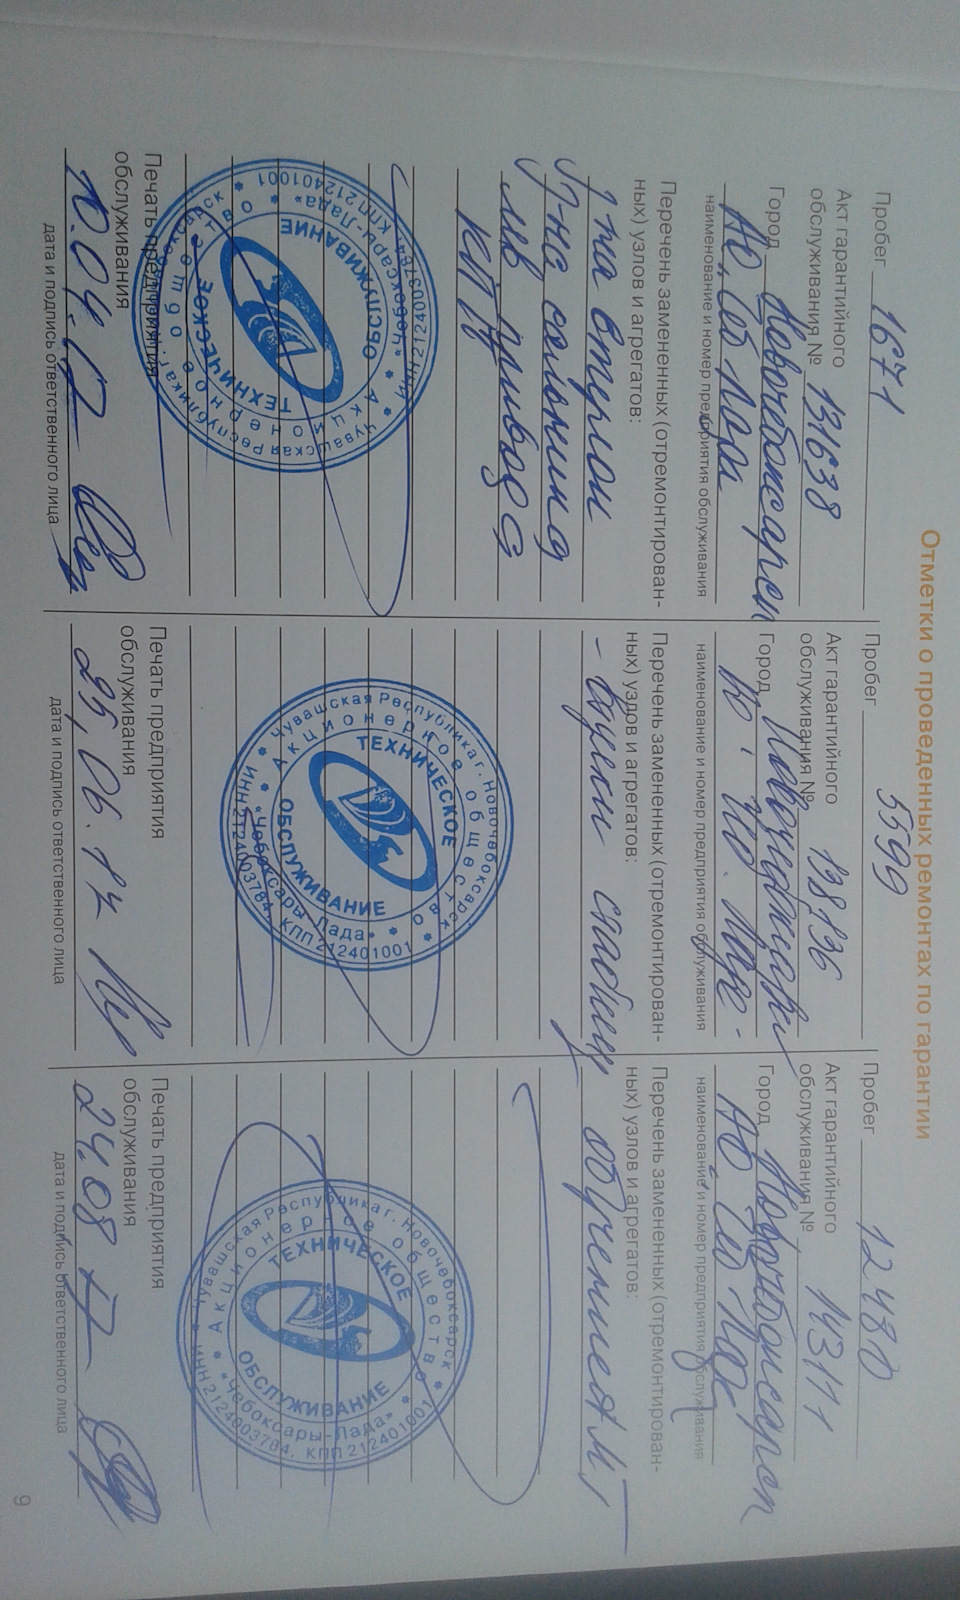 Отметки о проведенных ремонтах по гарантии
Пробег 1671
Акт гарантийного
обслуживания № 131638
Город Новочебоксарск
АО "Чеб Лада
наименование и номер предприятия обслуживания
Перечень замененных (отремонтирован-
ных) узлов и агрегатов:
привод
КПП
ТЕХНИЧЕСКОЕ
ОБСЛУЖИВАНИЕ
Акционерное общество
«Чебоксары-Лада»
Чувашская Республика г. Новочебоксарск
ИНН 2124003784, КПП 212401001
Печать предприятия
обслуживания
10.04.17
дата и подпись ответственного лица
Пробег 5599
Акт гарантийного
обслуживания № 138196
Город Новочебоксарск
наименование и номер предприятия обслуживания
Перечень замененных (отремонтирован-
ных) узлов и агрегатов:
- втулки стабил
ТЕХНИЧЕСКОЕ
ОБСЛУЖИВАНИЕ
Акционерное общество
«Чебоксары-Лада»
Чувашская Республика г. Новочебоксарск
ИНН 2124003784, КПП 212401001
Печать предприятия
обслуживания
25.06.17
дата и подпись ответственного лица
Пробег 12480
Акт гарантийного
обслуживания № 143111
Город Новочебоксарск
АО Чеб Лада
наименование и номер предприятия обслуживания
Перечень замененных (отремонтирован-
ных) узлов и агрегатов:
ТЕХНИЧЕСКОЕ
ОБСЛУЖИВАНИЕ
Акционерное общество
«Чебоксары-Лада»
Чувашская Республика г. Новочебоксарск
ИНН 2124003784, КПП 212401001
Печать предприятия
обслуживания
24.08.17
дата и подпись ответственного лица
9